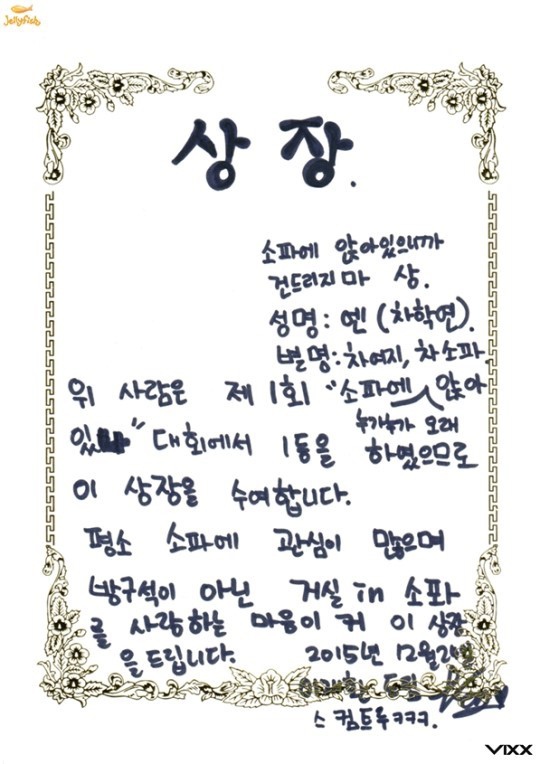 Jellyfish
상 장.
소파에 앉아있으니까
건드리지마 상.
성명: 엔 (차학연).
별명: 차여지, 차소파.
위 사람은 제 1회 "소파에 앉아
누가누가 오래
있" 대회에서 1등을 하였으므로
이 상장을 수여합니다.
평소 소파에 관심이 많으며
방구석이 아닌 거실 in 소파
를 사랑하는 마음이 커 이 상장
을 드립니다. 2015년 12월 24일
이재환 드림
스 컴트루 ㅋㅋㅋ.
VIXX